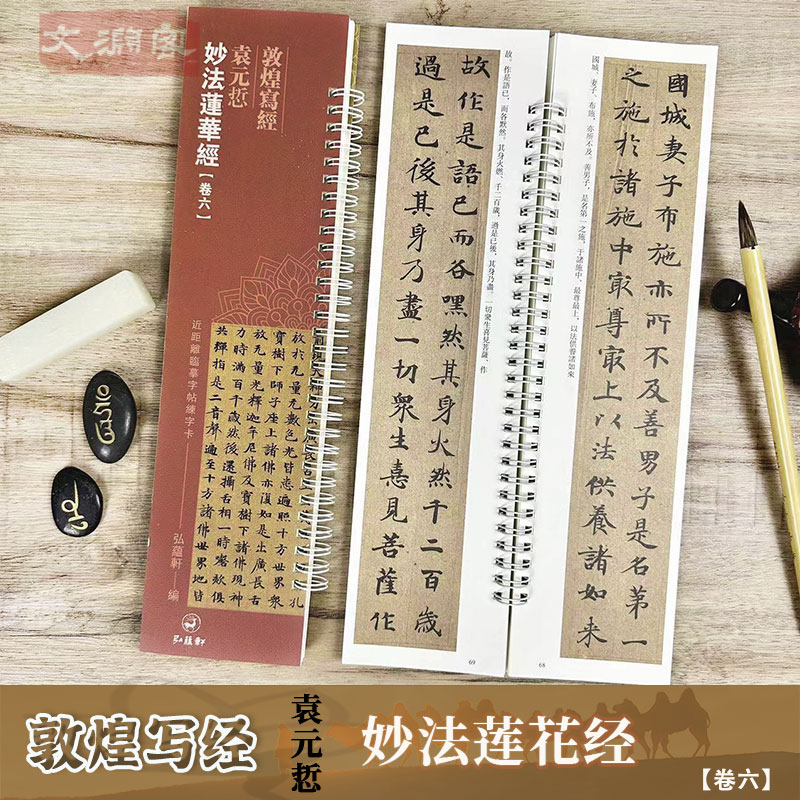 敦煌寫經
袁元悊
妙法蓮華經【卷六】
放於无量无數色光皆悉遍照十方世界衆
寶樹下師子座上諸佛亦復如是出廣長舌
放无量光釋迦牟尼佛及寶樹下諸佛現神
力時滿百千歲然後還攝舌相一時謦欬俱
共彈指是二音聲遍至十方諸佛世界地皆
近距離臨摹字帖練字卡
弘蘊軒 編
弘蘊軒
國城妻子布施亦所不及善男子是名第一
之施於諸施中冣尊冣上以法供養諸如来
國城、妻子、布施，亦所不及。善男子，是名第一之施，于諸施中，最尊最上，以法供養諸如來
68
故。作是語已，而各默然。其身火燃，千二百歲，過是已後，其身乃盡。一切衆生喜見菩薩，作
故作是語已而各嘿然其身火然千二百歲
過是已後其身乃盡一切衆生憙見菩薩作
69
敦煌写经
袁元悊
妙法莲花经
【卷六】